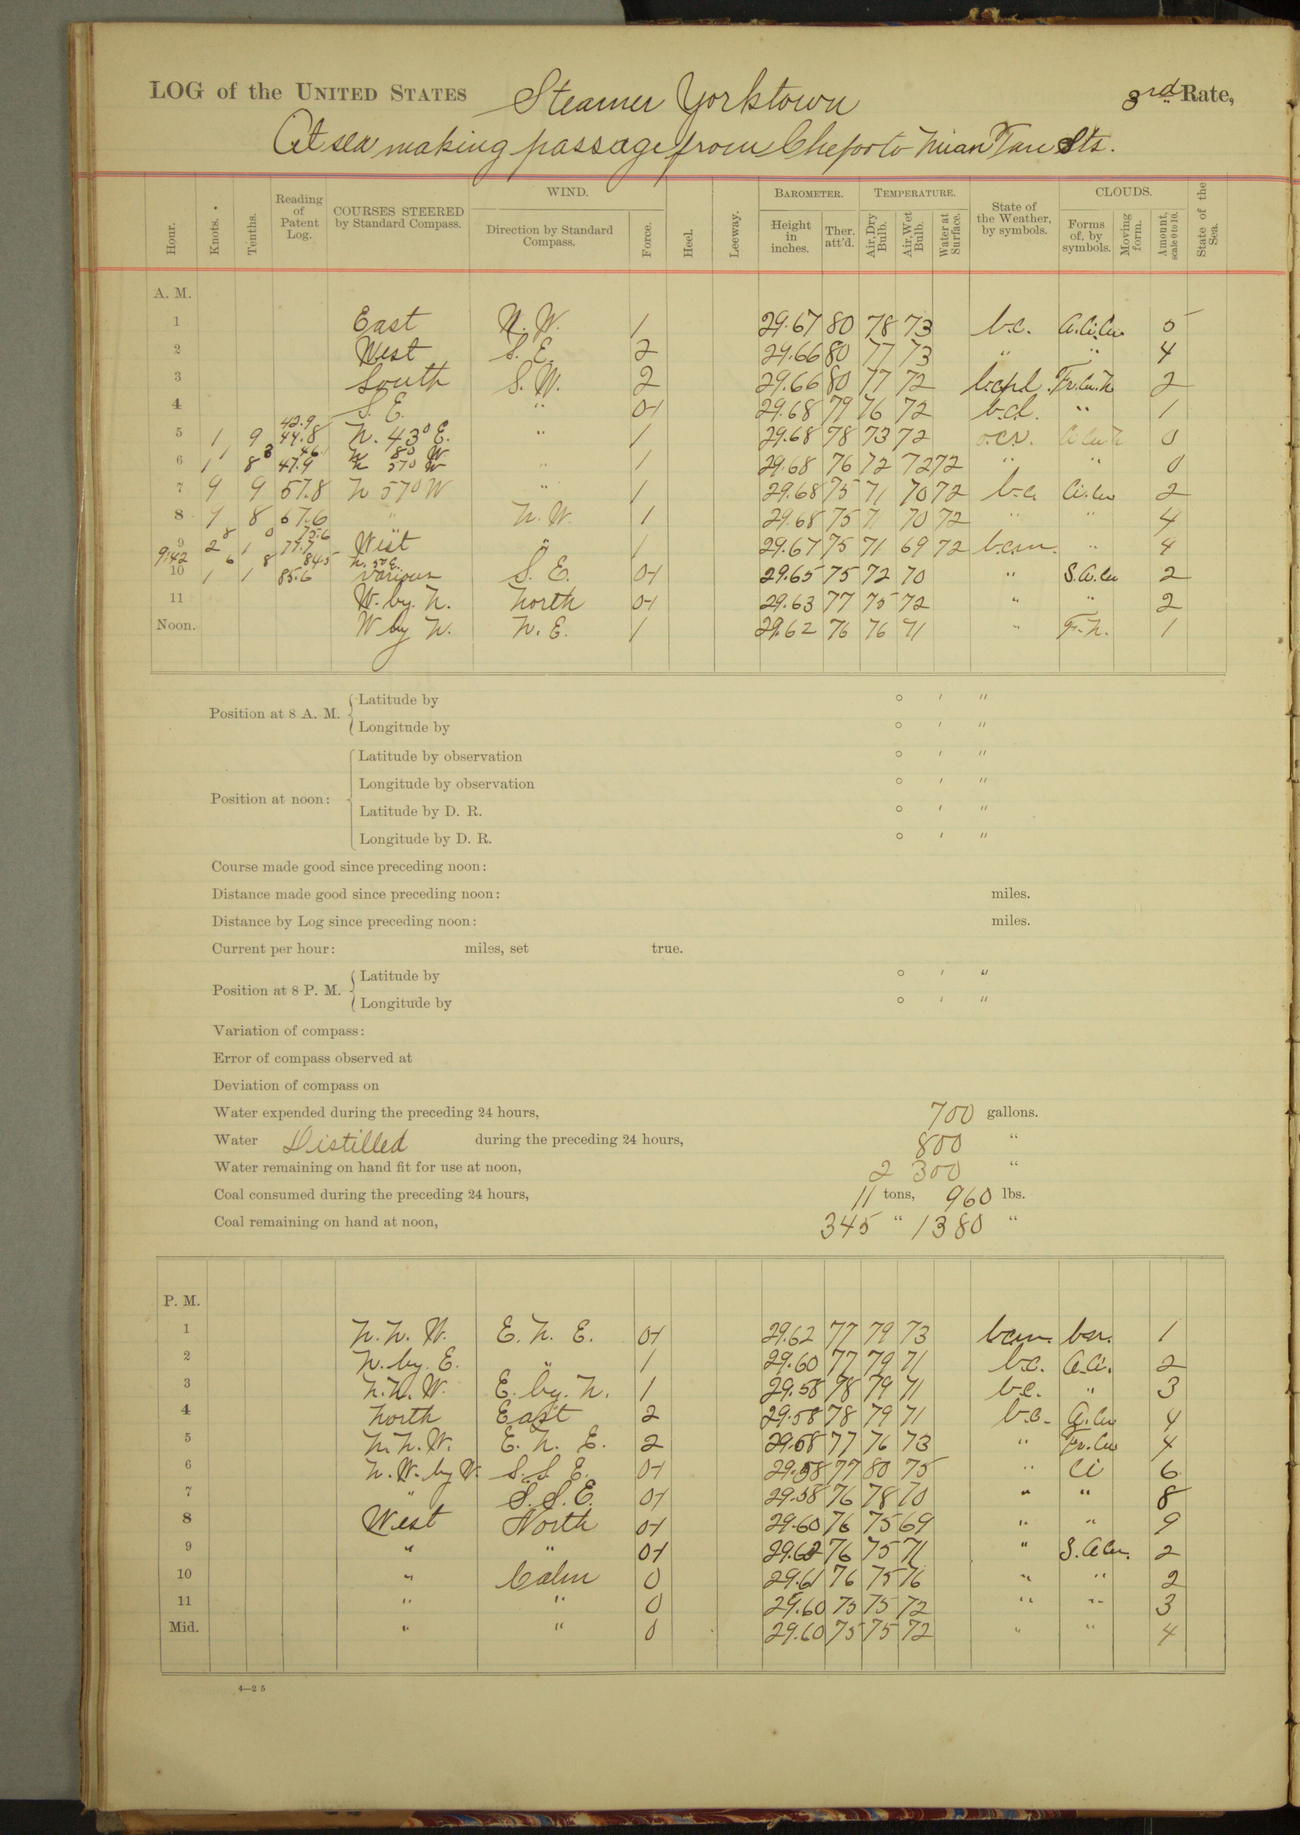 LOG of the UNITED STATES Steamer Yorktown 3rd Rate,
At sea making passage from Chefoo to Miau Tau Sts.
Hour. Knots. Tenths. Reading of Patent Log. COURSES STEERED by Standard Compass. WIND. Direction by Standard Compass. Force. Heel. Leeway. BAROMETER. Height in inches. Ther. att'd. TEMPERATURE. Air, Dry Bulb. Air, Wet Bulb. Water at Surface. State of the Weather, by symbols. CLOUDS. Forms of, by symbols. Moving form. Amount, scale 0 to 10. State of the Sea.
A. M.
1 East N. W. 1 29.67 80 78 73 b.c. a.Ci.Cu 5
2 West S. E. 2 29.66 80 77 73 " " 4
3 South S. W. 2 29.66 80 77 72 Fr.Cu.N 2
4 S. E. " 0-1 29.68 79 76 72 " 1
42.9
5 1 9 44.8 N. 43° E. " 1 29.68 78 73 72 0
3 46.1 N 80 W
6 1 8 47.9 N 57° W " 1 29.68 76 72 72 72 " " 0
7 9 9 57.8 N 57° W " 1 29.68 75 71 70 72 b.c. Ci.Cu 2
8 9 8 67.6 " N. W. 1 29.68 75 71 70 72 " " 4
8 0 75.6
9 2 1 77.7 West " 1 29.67 75 71 69 72 b.c.m. " 4
9.42 6 8 84.5
10 1 1 85.6 various S. E. 0-1 29.65 75 72 70 " S.a.Cu 2
11 W. by. N. North 0-1 29.63 77 75 72 " " 2
Noon. W by N. N. E. 1 29.62 76 76 71 " Fr. N. 1
Position at 8 A. M. Latitude by ° ′ ″
Longitude by ° ′ ″
Position at noon: Latitude by observation ° ′ ″
Longitude by observation ° ′ ″
Latitude by D. R. ° ′ ″
Longitude by D. R. ° ′ ″
Course made good since preceding noon:
Distance made good since preceding noon: miles.
Distance by Log since preceding noon: miles.
Current per hour: miles, set true.
Position at 8 P. M. Latitude by ° ′ ″
Longitude by ° ′ ″
Variation of compass:
Error of compass observed at
Deviation of compass on
Water expended during the preceding 24 hours, 700 gallons.
Water Distilled during the preceding 24 hours, 800 "
Water remaining on hand fit for use at noon, 2 300 "
Coal consumed during the preceding 24 hours, 11 tons, 960 lbs.
Coal remaining on hand at noon, 345 " 1380 "
P. M.
1 N. N. W. E. N. E. 0-1 29.62 77 79 73 b.c.m. 1
2 N. by. E. " 1 29.60 77 79 71 b.c. a.Ci. 2
3 N. N. W. E. by. N. 1 29.58 78 79 71 b.c. " 3
4 North East 2 29.58 78 79 71 b.c. a.Cu 4
5 N. N. W. E. N. E. 2 29.58 77 76 73 " Fr.Cu 4
6 N. W. by W. S. S. E. 0-1 29.58 77 80 75 " Ci 6
7 " S. S. E. 0-1 29.58 76 78 70 " " 8
8 West North 0-1 29.60 76 75 69 " " 9
9 " " 0-1 29.62 76 75 71 " S.a.Cu. 2
10 " Calm 0 29.61 76 75 76 " " 2
11 " " 0 29.60 75 75 72 " " 3
Mid. " " 0 29.60 75 75 72 " " 4
4—2 5